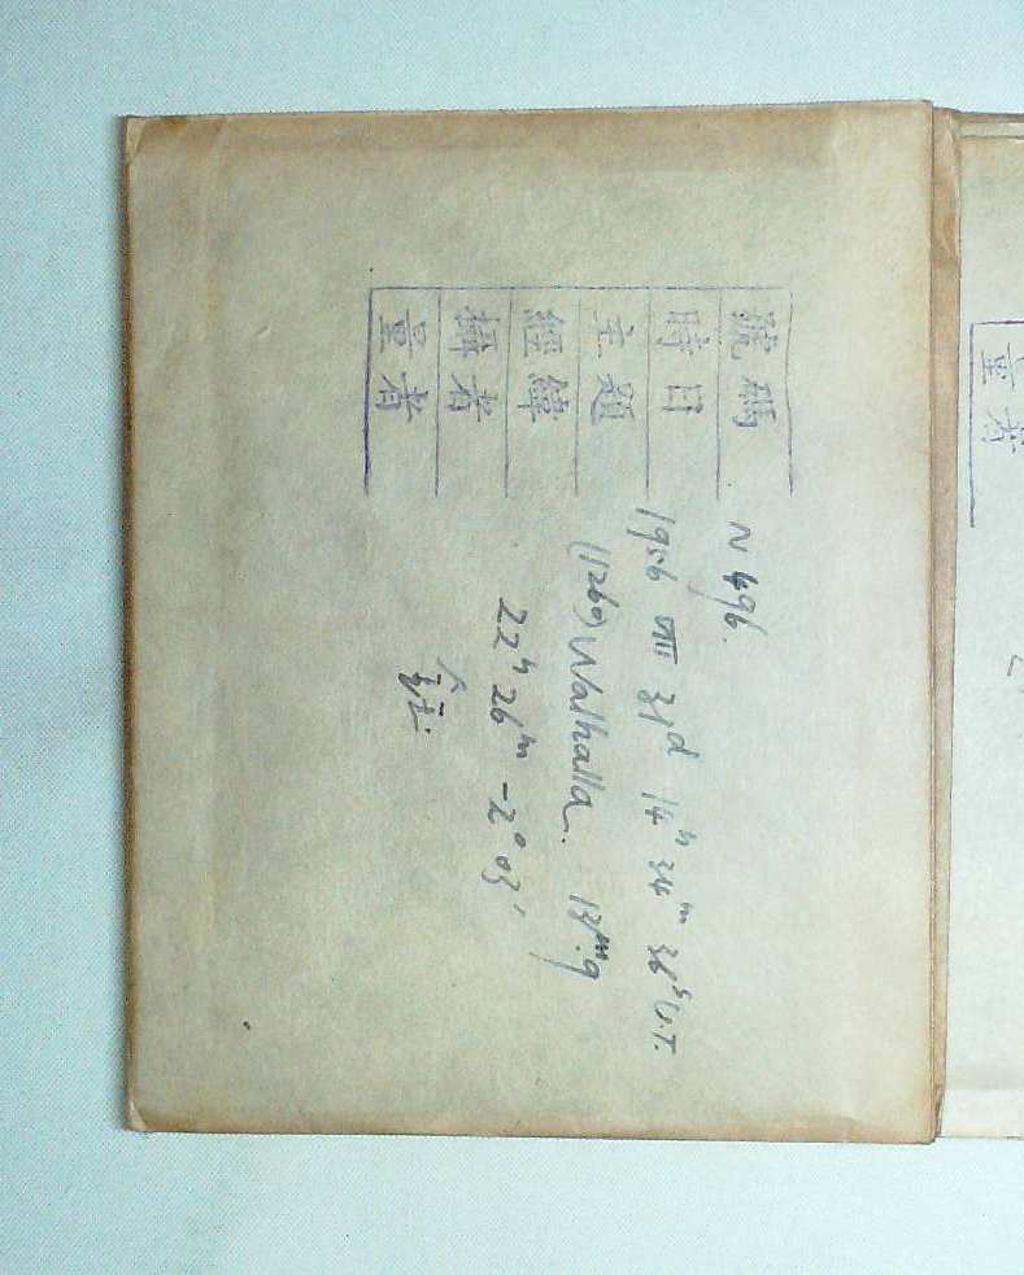 號碼 N 496.
時日 1956 VIII 31d 14h 34m 36s U.T.
主題 (1260) Walhalla. 13m.9
經緯 22h 26m -2° 03'
攝者
量者
量者